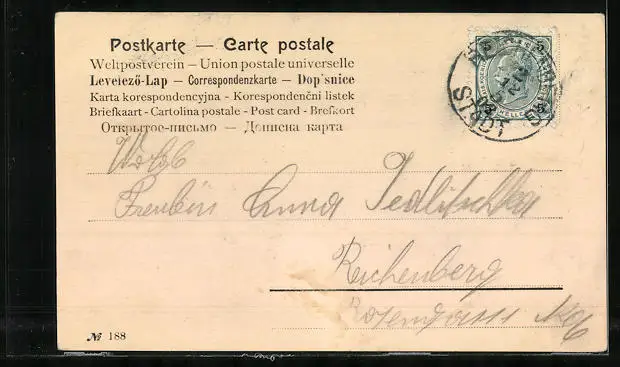 Postkarte — Carte postale
Weltpostverein – Union postale universelle
Levelező-Lap — Correspondenzkarte — Dopisnice
Karta korespondencyjna - Korespondenční listek
Briefkaart - Cartolina postale - Post card - Brefkort
Открытое-письмо — Дописна карта
Wohlg
Fräulein Anna Jedlitschka
Reichenberg
STADT
№ 188